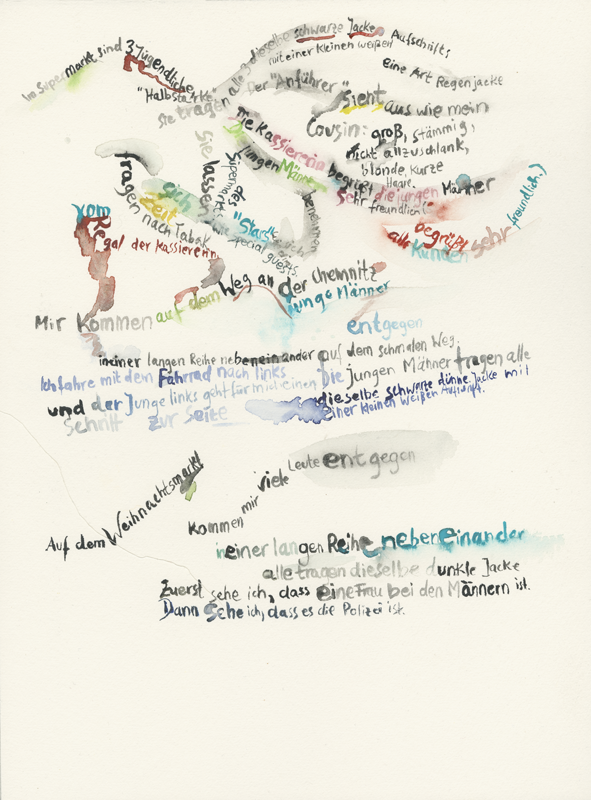 Im Supermarkt sind 3 Jugendliche
"Halbstarke"
Sie tragen alle 3 dieselbe schwarze Jacke
mit einer kleinen weißen Aufschrift,
eine Art Regenjacke
Der "Anführer"
sieht aus wie mein
Cousin: groß, stämmig,
nicht allzu schlank,
blonde, kurze
Haare.
Die Kassiererin begrüßt die jungen Männer
sehr freundlich
(Sie begrüßt
alle Kunden sehr freundlich.)
Die jungen Männer benehmen
sich
wie special guests.
Sie lassen
sich
Zeit
der
"Stars"
des
Supermarkts
fragen nach Tabak
vom
Regal der Kassiererin
Auf dem Weg an der Chemnitz
Mir kommen
junge Männer
entgegen
in einer langen Reihe nebeneinander auf dem schmalen Weg.
Ich fahre mit dem Fahrrad nach links
Die jungen Männer tragen alle
und der Junge links geht für mich einen
dieselbe schwarze dünne Jacke mit
Schritt zur Seite
einer kleinen weißen Aufschrift.
Auf dem Weihnachtsmarkt
kommen mir viele Leute entgegen
in einer langen Reihe nebeneinander
alle tragen dieselbe dunkle Jacke
Zuerst sehe ich, dass eine Frau bei den Männern ist.
Dann sehe ich, dass es die Polizei ist.